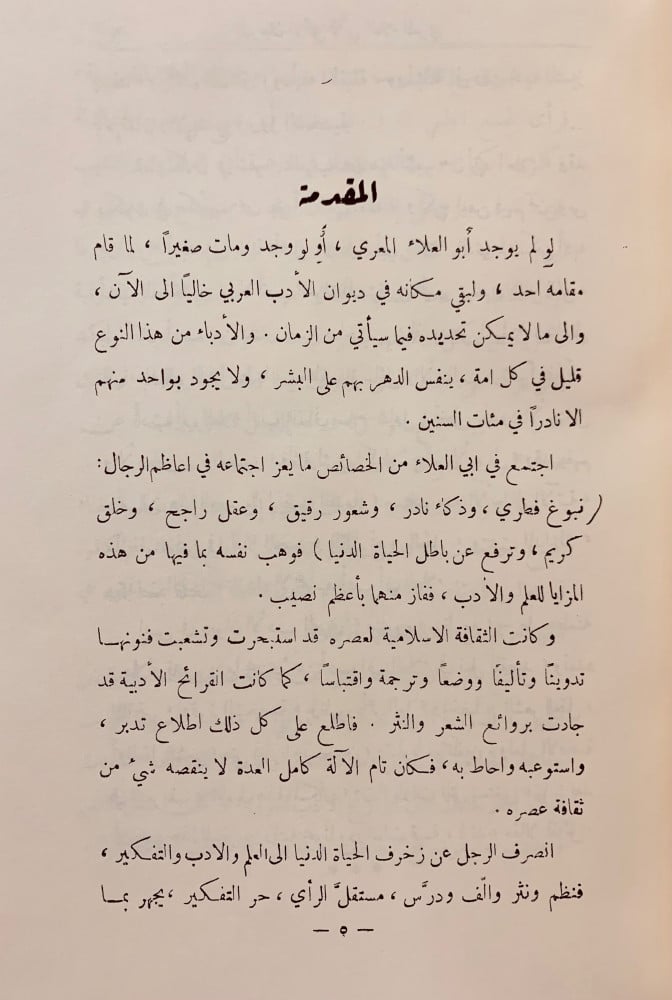 المقدمة
لو لم يوجد أبو العلاء المعري ، أو لو وجد ومات صغيراً ، لما قام
مقامه احد ، ولبقي مكانه في ديوان الأدب العربي خالياً الى الآن ،
والى ما لا يمكن تحديده فيما سيأتي من الزمان . والأدباء من هذا النوع
قليل في كل امة ، ينفس الدهر بهم على البشر ، ولا يجود بواحد منهم
الا نادراً في مئات السنين .
اجتمع في ابي العلاء من الخصائص ما يعز اجتماعه في اعاظم الرجال :
( نبوغ فطري ، وذكاء نادر ، وشعور رقيق ، وعقل راجح ، وخلق
كريم ، وترفع عن باطل الحياة الدنيا ) فوهب نفسه بما فيها من هذه
المزايا للعلم والأدب ، ففاز منهما بأعظم نصيب .
وكانت الثقافة الاسلامية لعصره قد استبحرت وتشعبت فنونهـا
تدويناً وتأليفاً ووضعاً وترجمة واقتباساً ، كما كانت القرائح الأدبية قد
جادت بروائع الشعر والنثر . فاطلع على كل ذلك اطلاع تدبر ،
واستوعبه واحاط به ، فكان تام الآلة كامل العدة لا ينقصه شيء من
ثقافة عصره .
انصرف الرجل عن زخرف الحياة الدنيا الى العلم والادب والتفكير ،
فنظم ونثر والّف ودرَّس ، مستقلَّ الرأي ، حر التفكير ، يجهر بمـا
— ٥ —